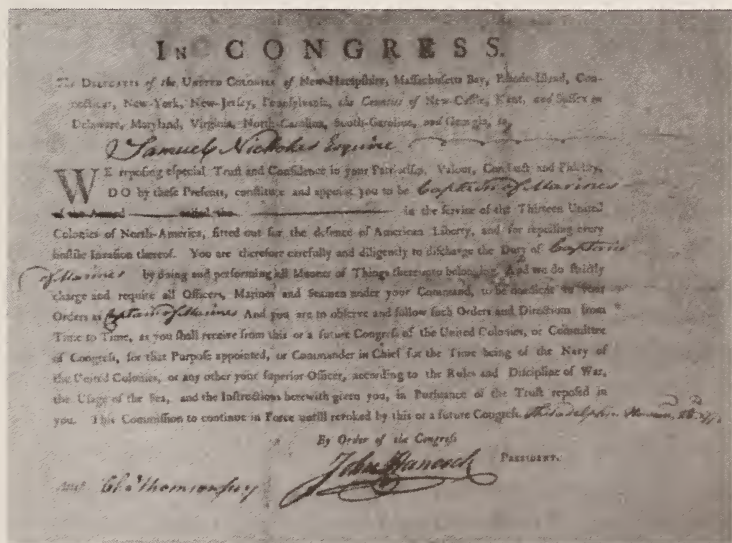 IN CONGRESS.
The DELEGATES of the UNITED COLONIES of New-Hampshire, Massachusetts Bay, Rhode-Island, Con-
necticut, New-York, New-Jersey, Pennsylvania, the Counties of New-Castle, Kent, and Sussex on
Delaware, Maryland, Virginia, North-Carolina, South-Carolina, and Georgia, to
Samuel Nicholas Esquire
WE reposing especial Trust and Confidence in your Patriotism, Valour, Conduct and Fidelity,
DO by these Presents, constitute and appoint you to be Captain of Marines
of the Armed called the in the service of the Thirteen United
Colonies of North-America, fitted out for the defence of American Liberty, and for repelling every
hostile Invasion thereof. You are therefore carefully and diligently to discharge the Duty of Captain
of Marines by doing and performing all Manner of Things thereunto belonging. And we do strictly
charge and require all Officers, Marines and Seamen under your Command, to be obedient to your
Orders as Captain of Marines And you are to observe and follow such Orders and Directions from
Time to Time, as you shall receive from this or a future Congress of the United Colonies, or Committee
of Congress, for that Purpose appointed, or Commander in Chief for the Time being of the Navy of
the United Colonies, or any other your superior Officer, according to the Rules and Discipline of War,
the Usage of the Sea, and the Instructions herewith given you, in Pursuance of the Trust reposed in
you. This Commission to continue in Force untill revoked by this or a future Congress. Philadelphia
By Order of the Congress
John Hancock PRESIDENT.
Cha Thomson secy